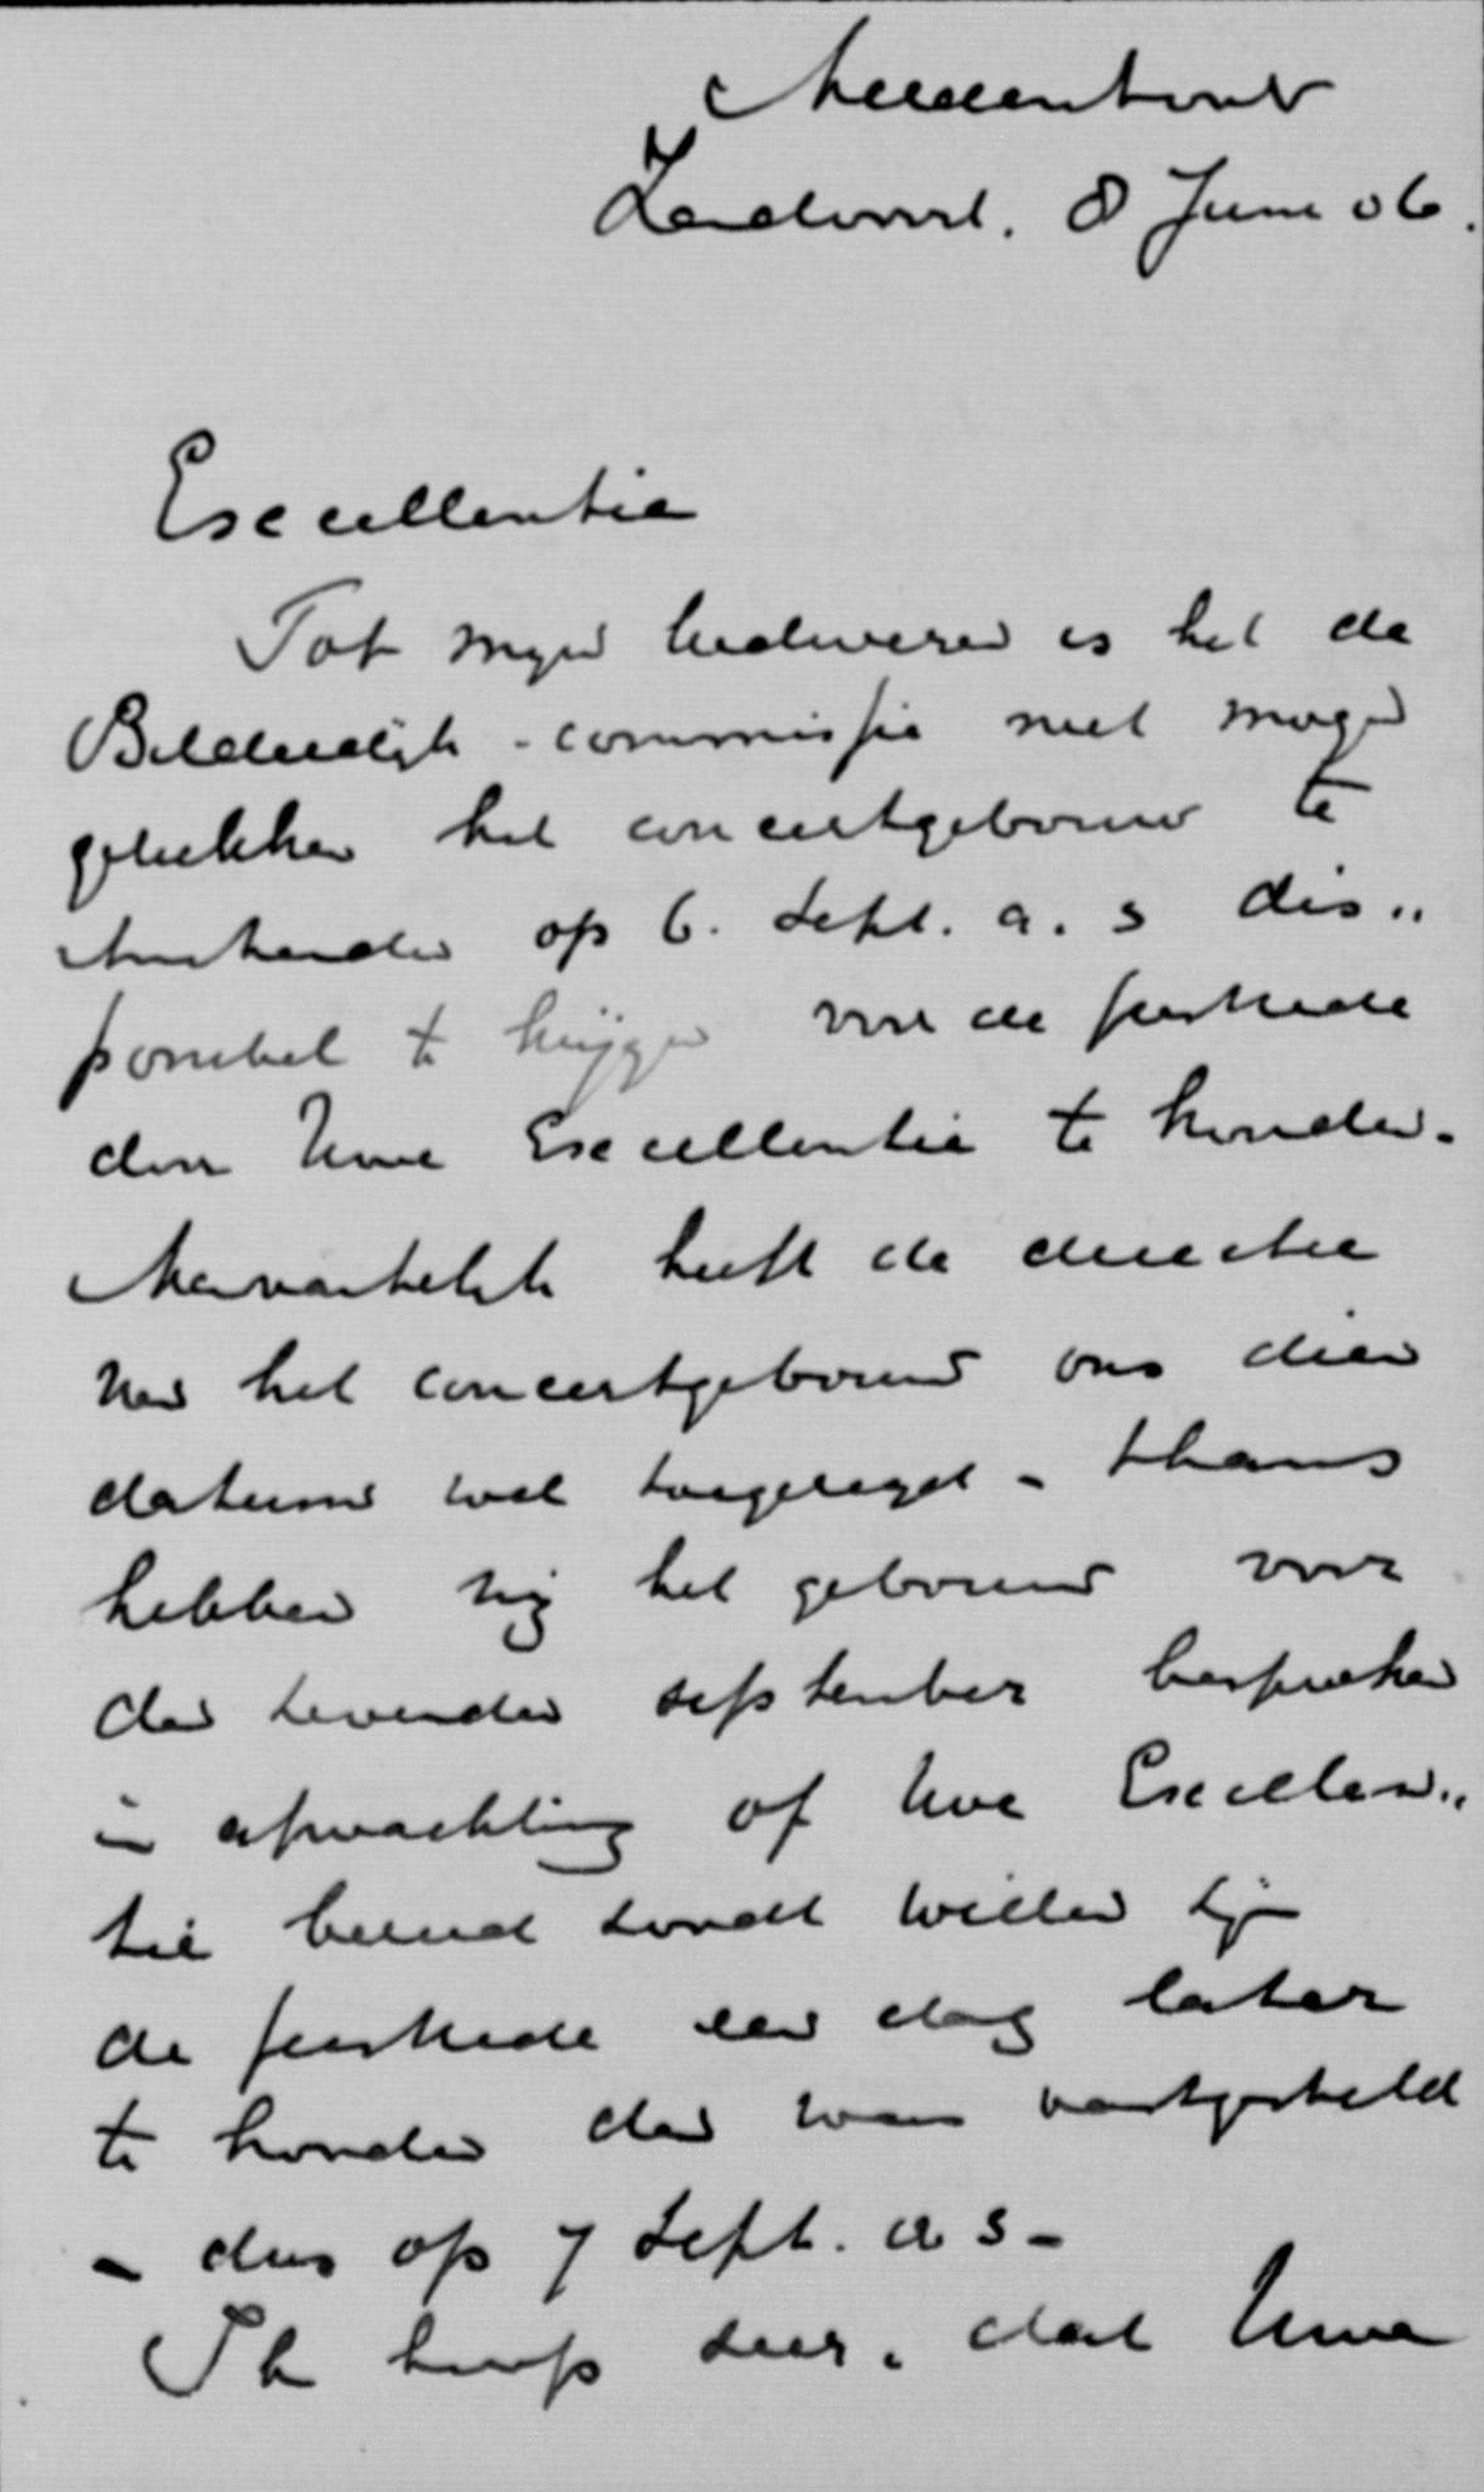 Aerdenhout
Zandvoort. 8 Juni 06.
Excellentie
Tot mijn leedwezen is het de
Bilderdijk-commissie niet mogen
gelukken het concertgebouw te
Amsterdam op 6. Sept. a. s dis„
ponibel te krijgen voor de feestrede
door Uwe Excellentie te houden.
Aanvankelijk heeft de directie
van het concertgebouw ons dien
datum wel toegezegd - thans
hebben wij het gebouw voor
den zevenden september besproken
in afwachting of Uwe Excellen„
tie bereid zoudt willen zijn
de feestrede een dag later
te houden dan was vastgesteld
- dus op 7 Sept. a s -
Ik hoop zeer, dat Uwe